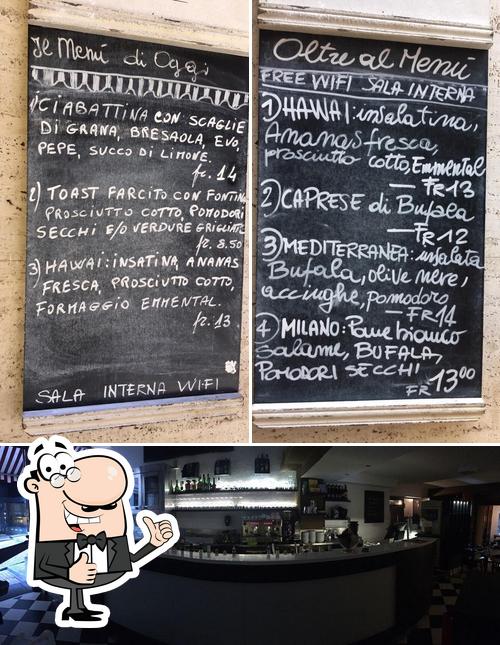 Il Menú di Oggi
1) CIABATTINA CON SCAGLIE
DI GRANA, BRESAOLA, EVO,
PEPE, SUCCO DI LIMONE.
fr. 14
2) TOAST FARCITO CON FONTINA
PROSCIUTTO COTTO, POMODORI
SECCHI E/O VERDURE GRIGLIATE
fr. 8.50
3) HAWAI: INSATINA, ANANAS
FRESCA, PROSCIUTO COTTO,
FORMAGGIO EMMENTAL.
fr. 13.
SALA INTERNA WI-FI
Oltre al Menú
FREE WIFI SALA INTERNA
1) HAWAI: insalatina,
Ananas fresca,
prosciutto cotto, Emmental
— FR 13
2) CAPRESE di Bufala
— FR 12
3) MEDITERRANEA: insalata
Bufala, olive nere,
acciughe, pomodoro
— FR 14
4) MILANO: Pane bianco
Salame, BUFALA,
POMODORI SECCHI
FR 13.00